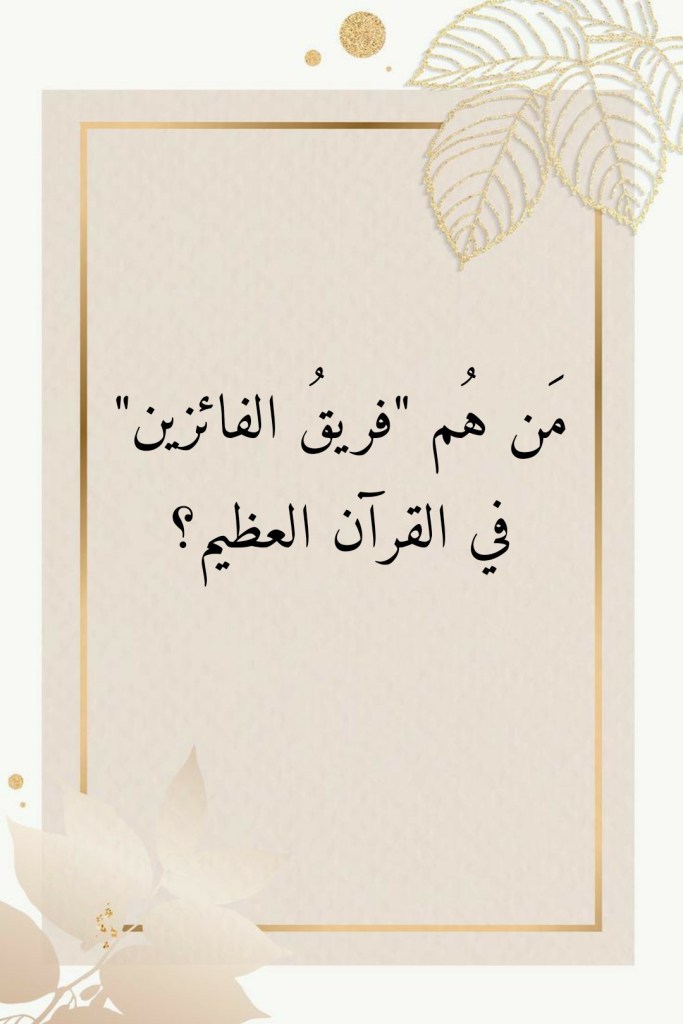 مَن هُم "فريقُ الفائزين"
في القرآن العظيم؟